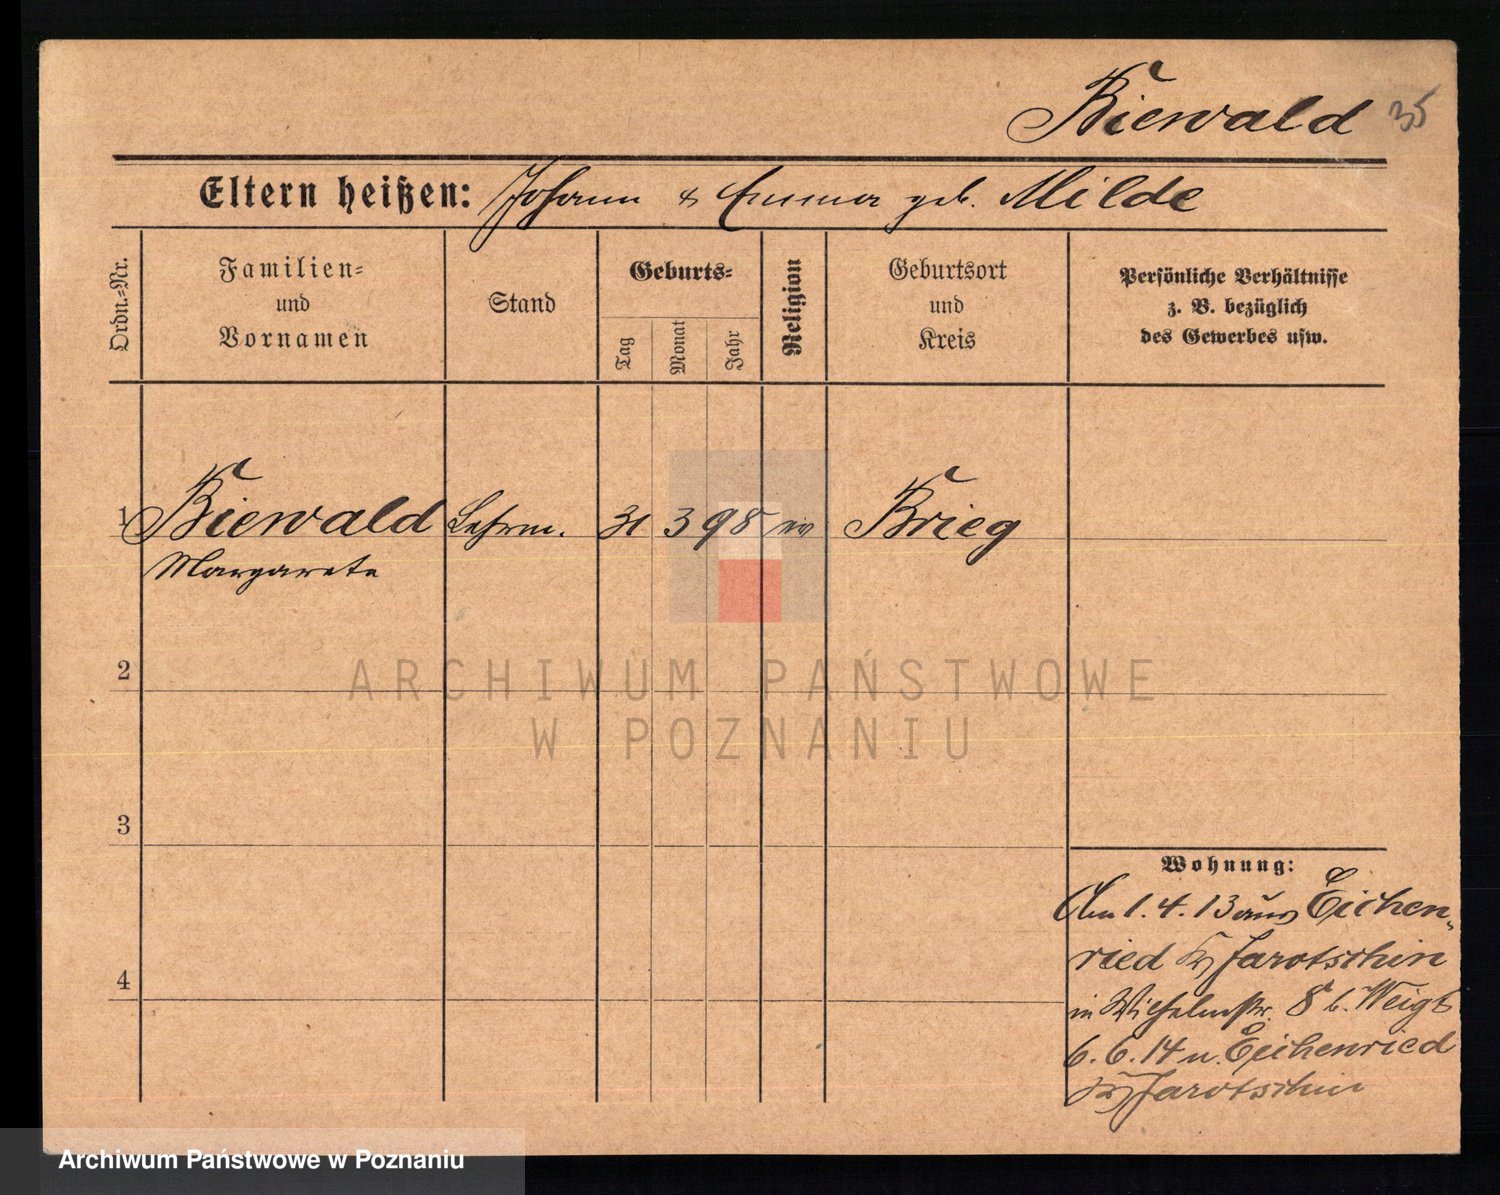 Biewald 35
Eltern heißen: Johann & Emma geb. Milde
Ordn.-Nr.
Familien-
und
Vornamen
Stand
Geburts-
Tag
Monat
Jahr
Religion
Geburtsort
und
Kreis
Persönliche Verhältnisse
z. B. bezüglich
des Gewerbes usw.
1 Biewald Lehrm. 31 3 98 ev Brieg
Margarete
2
3
4
Wohnung:
Am 1.4.13 aus Eichen-
ried Kr Jarotschin
in Wilhelmstr. 8 b. Weigt
6.6.14 n. Eichenried
Kr Jarotschin
ARCHIWUM PAŃSTWOWE
W POZNANIU
Archiwum Państwowe w Poznaniu